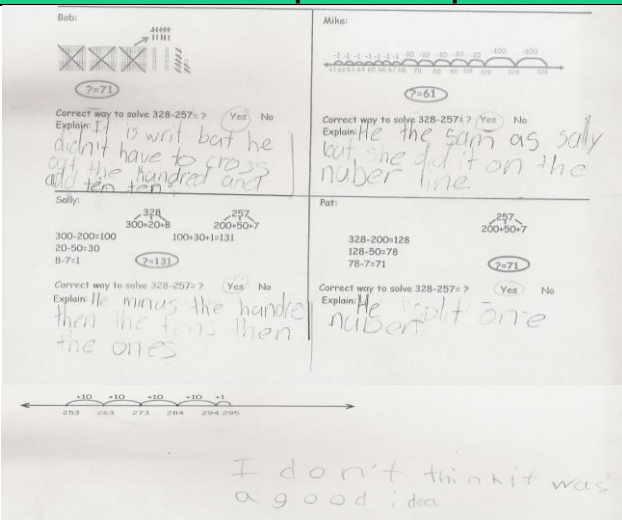 Bob:
?=71
Correct way to solve 328-257= ? Yes No
Explain: It is writ but he
didn't have to cross
out the hundred and
add ten ten
Mike:
-1 -1 -1 -1 -1 -1 -1 -10 -10 -10 -10 -10 -100 -100
?=61
Correct way to solve 328-257= ? Yes No
Explain: He the sam as sally
but she did it on the
nuber line
Sally:
328 257
300+20+8 200+50+7
300-200=100 100+30+1=131
20-50=30
8-7=1 ?=131
Correct way to solve 328-257= ? Yes No
Explain: He minus the hundre
then the tens then
the ones
Pat:
257
200+50+7
328-200=128
128-50=78
78-7=71 ?=71
Correct way to solve 328-257= ? Yes No
Explain: He split one
nuber
+10 +10 +10 +10 +1
253 263 273 284 294 295
I don't think it was
a good idea